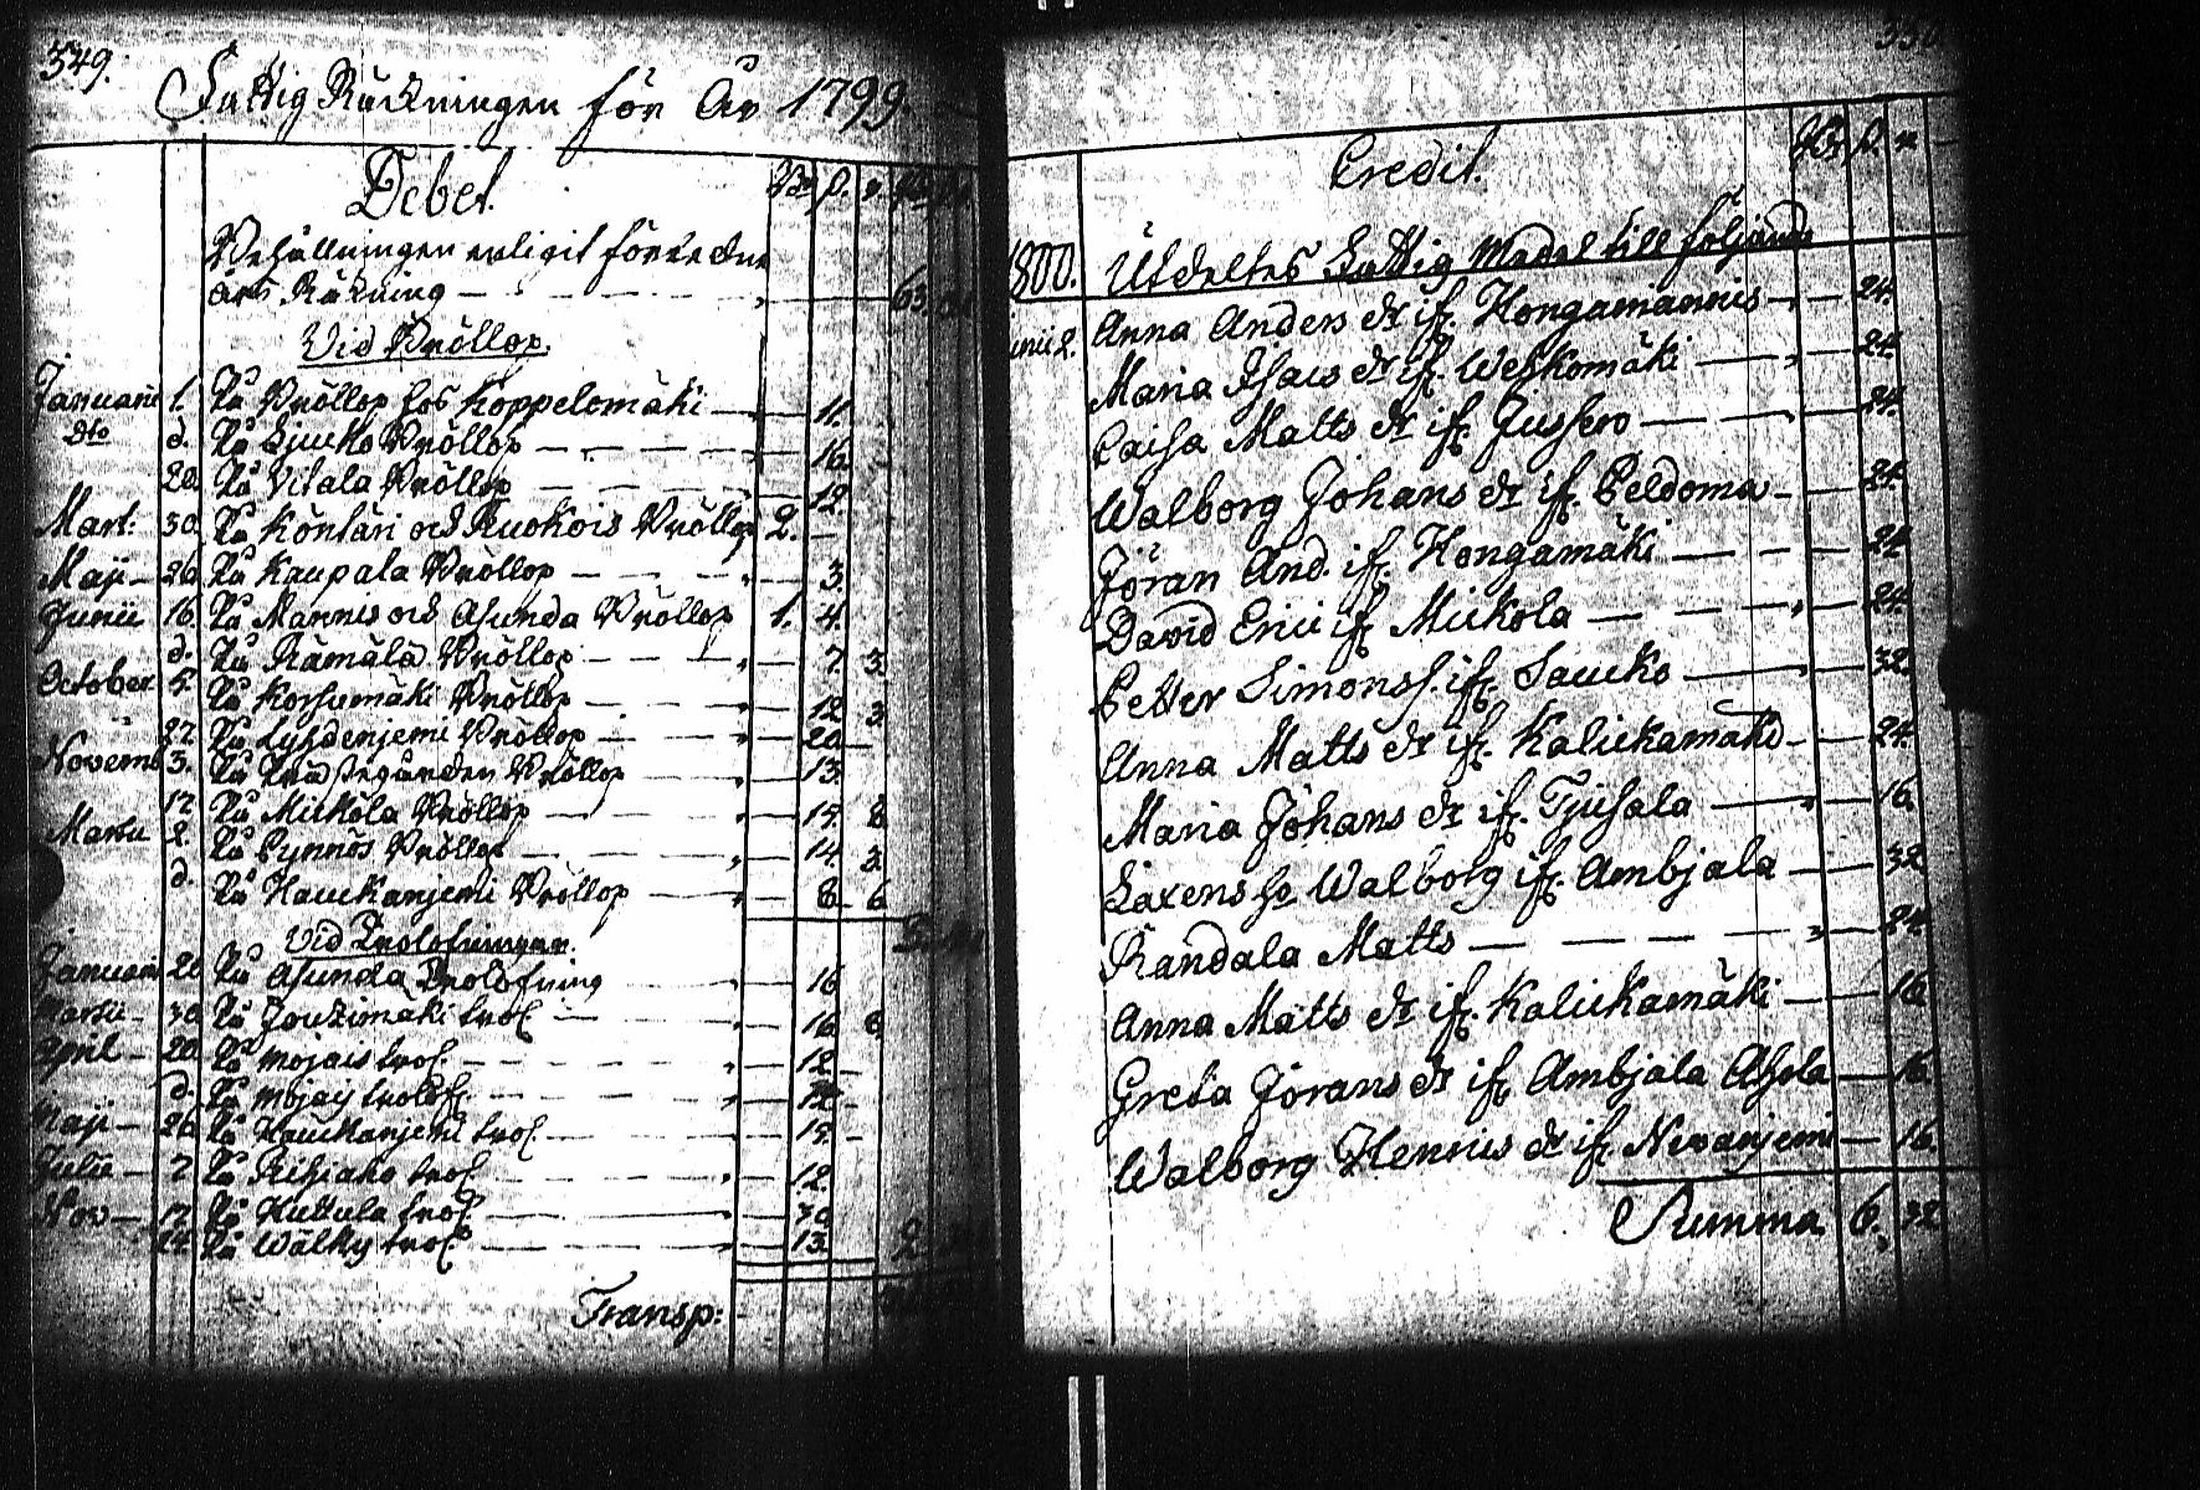 549.
Fattig Räckningen för År 1799
Debet. Rdr s. r.
Behållningen enligit förledne
års Räkning — 63.
Vid Bröllop.
Januarii 1. På Bröllop hos Koppelomäki — 11.
dto d. På Sjucko Bröllop — 16.
20. På Vitala Bröllop — 12.
Mart: 30. På Köntäri och Ruokois Bröllop 2. —
Maji — 26. På Kaupala Bröllop — 3.
Junii 16. På Mannis och Asunda Bröllop 1. 4.
d. På Rämälä Bröllop — 7. 3.
October 5. På Korsumäki Bröllop — 12 3.
27. På Lyhdenjemi Bröllop — 20 —
Novemb 3. På Bröllop — 13.
17. På Mickola Bröllop — 19. 8.
Martii 2. På Pynnös Bröllop — 14. 3.
d. På Hauckanjemi Bröllop — 8. 6.
Vid Trolofningar.
Januarii 20 På Asunda Trolofning — 16
Martii — 30. På Jouzimäki trol. — 16 6.
April — 20. På Mojais trol. — 12 —
d. På Mojais trolof. — 12 —
Maji — 26. På Hauckanjemi trol. — 19. —
Julii — 7 På trol. — 12.
Nov — 17. På Huttula trol. — 30
24. På Wälky trol. — 13. 2
Transp:
350
Credit. Rdr s. r
1800. Utdeltes Fattig Medel till följande
Junii 2. Anna Anders dr if. Hongamannis — 24.
Maria Isacs dr if. Weskomäki — 24.
Caisa Matts dr if. Jussero — 24.
Walborg Johans dr if. Peldoma — 24.
Jöran And. if. Hongamäki — 24
David Erici if. Mickola — 24.
Petter Simonss. if. Saucko — 32.
Anna Matts dr if. Kalickamäki — 24.
Maria Johans dr if. Tjusala — 16.
Laxens h. Walborg if. Ambjala — 32
Randala Matts — 24
Anna Matts dr if. Kalickamäki — 16.
Greta Jörans dr if. Ambjala Ahola — 16.
Walborg Henrics dr if. Nevanjemi — 16.
Summa 6. 32